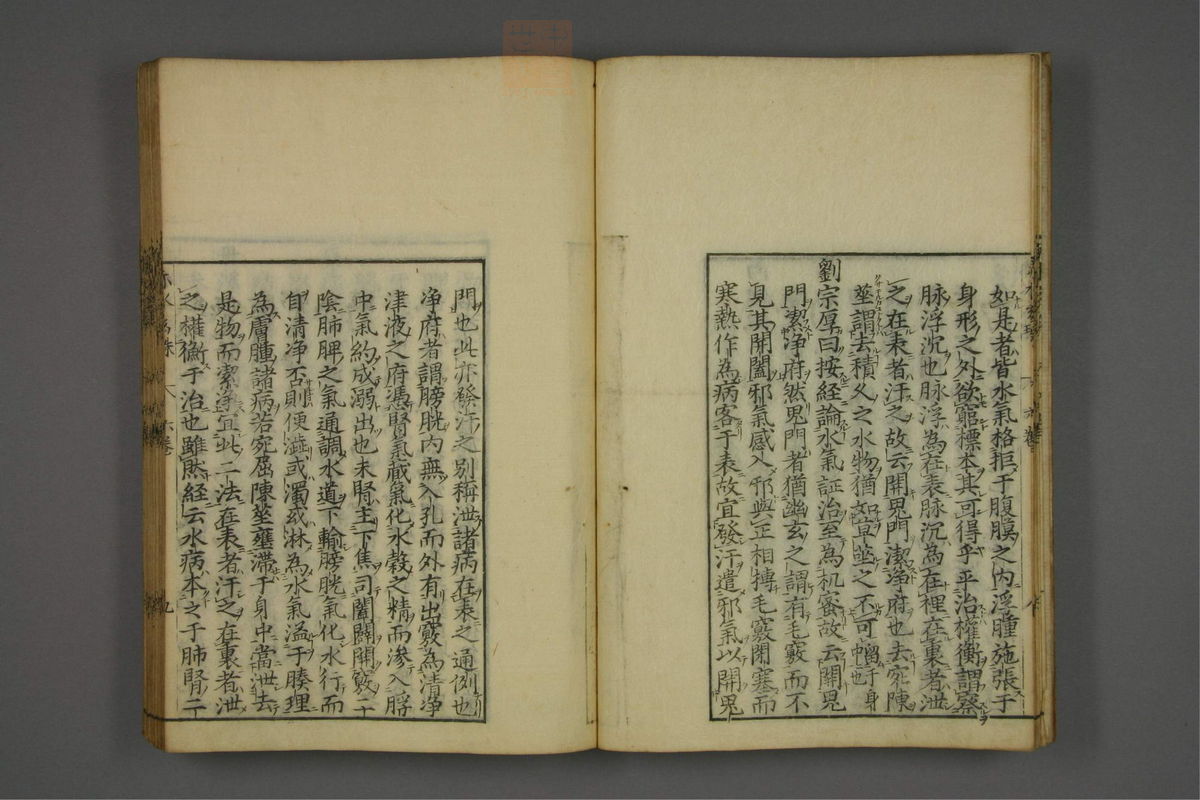 如是者皆水氣格拒于腹膜之内浮腫施張于
身形之外欲窮標本其可得乎平治權衡謂察
脉浮沉也脉浮為在表脉沉為在裡在裏者泄
之在表者汗之故云開鬼門潔淨府也去宛陳
莝謂去積久之水物猶如草莖之不可畱于身也
劉宗厚曰按経論水氣証治至為机密故云開鬼
門潔淨府然鬼門者猶幽玄之謂有毛竅而不
見其開闔邪氣感入邪與正相摶毛竅閉塞而
寒熱作為病客于表故宜發汗遣邪氣以開鬼
門也此亦發汗之別稱泄諸病在表之通例也
净府者謂膀胱内無入孔而外有出竅為清净
津液之府馮腎氣藏氣化水穀之精而滲入脬
中氣約成溺出也夫腎主下焦司闔闢開竅二
陰肺脾之氣通調水道下輸膀胱氣化水行而
自清净否則便澁或濁或淋為水氣溢于腠理
為膚腫諸病若宛屈陳莝壅滯于身中當泄去
是物而潔淨宜此二法在表者汗之在裏者泄
之權衡于治也雖然経云水病本之于肺腎二